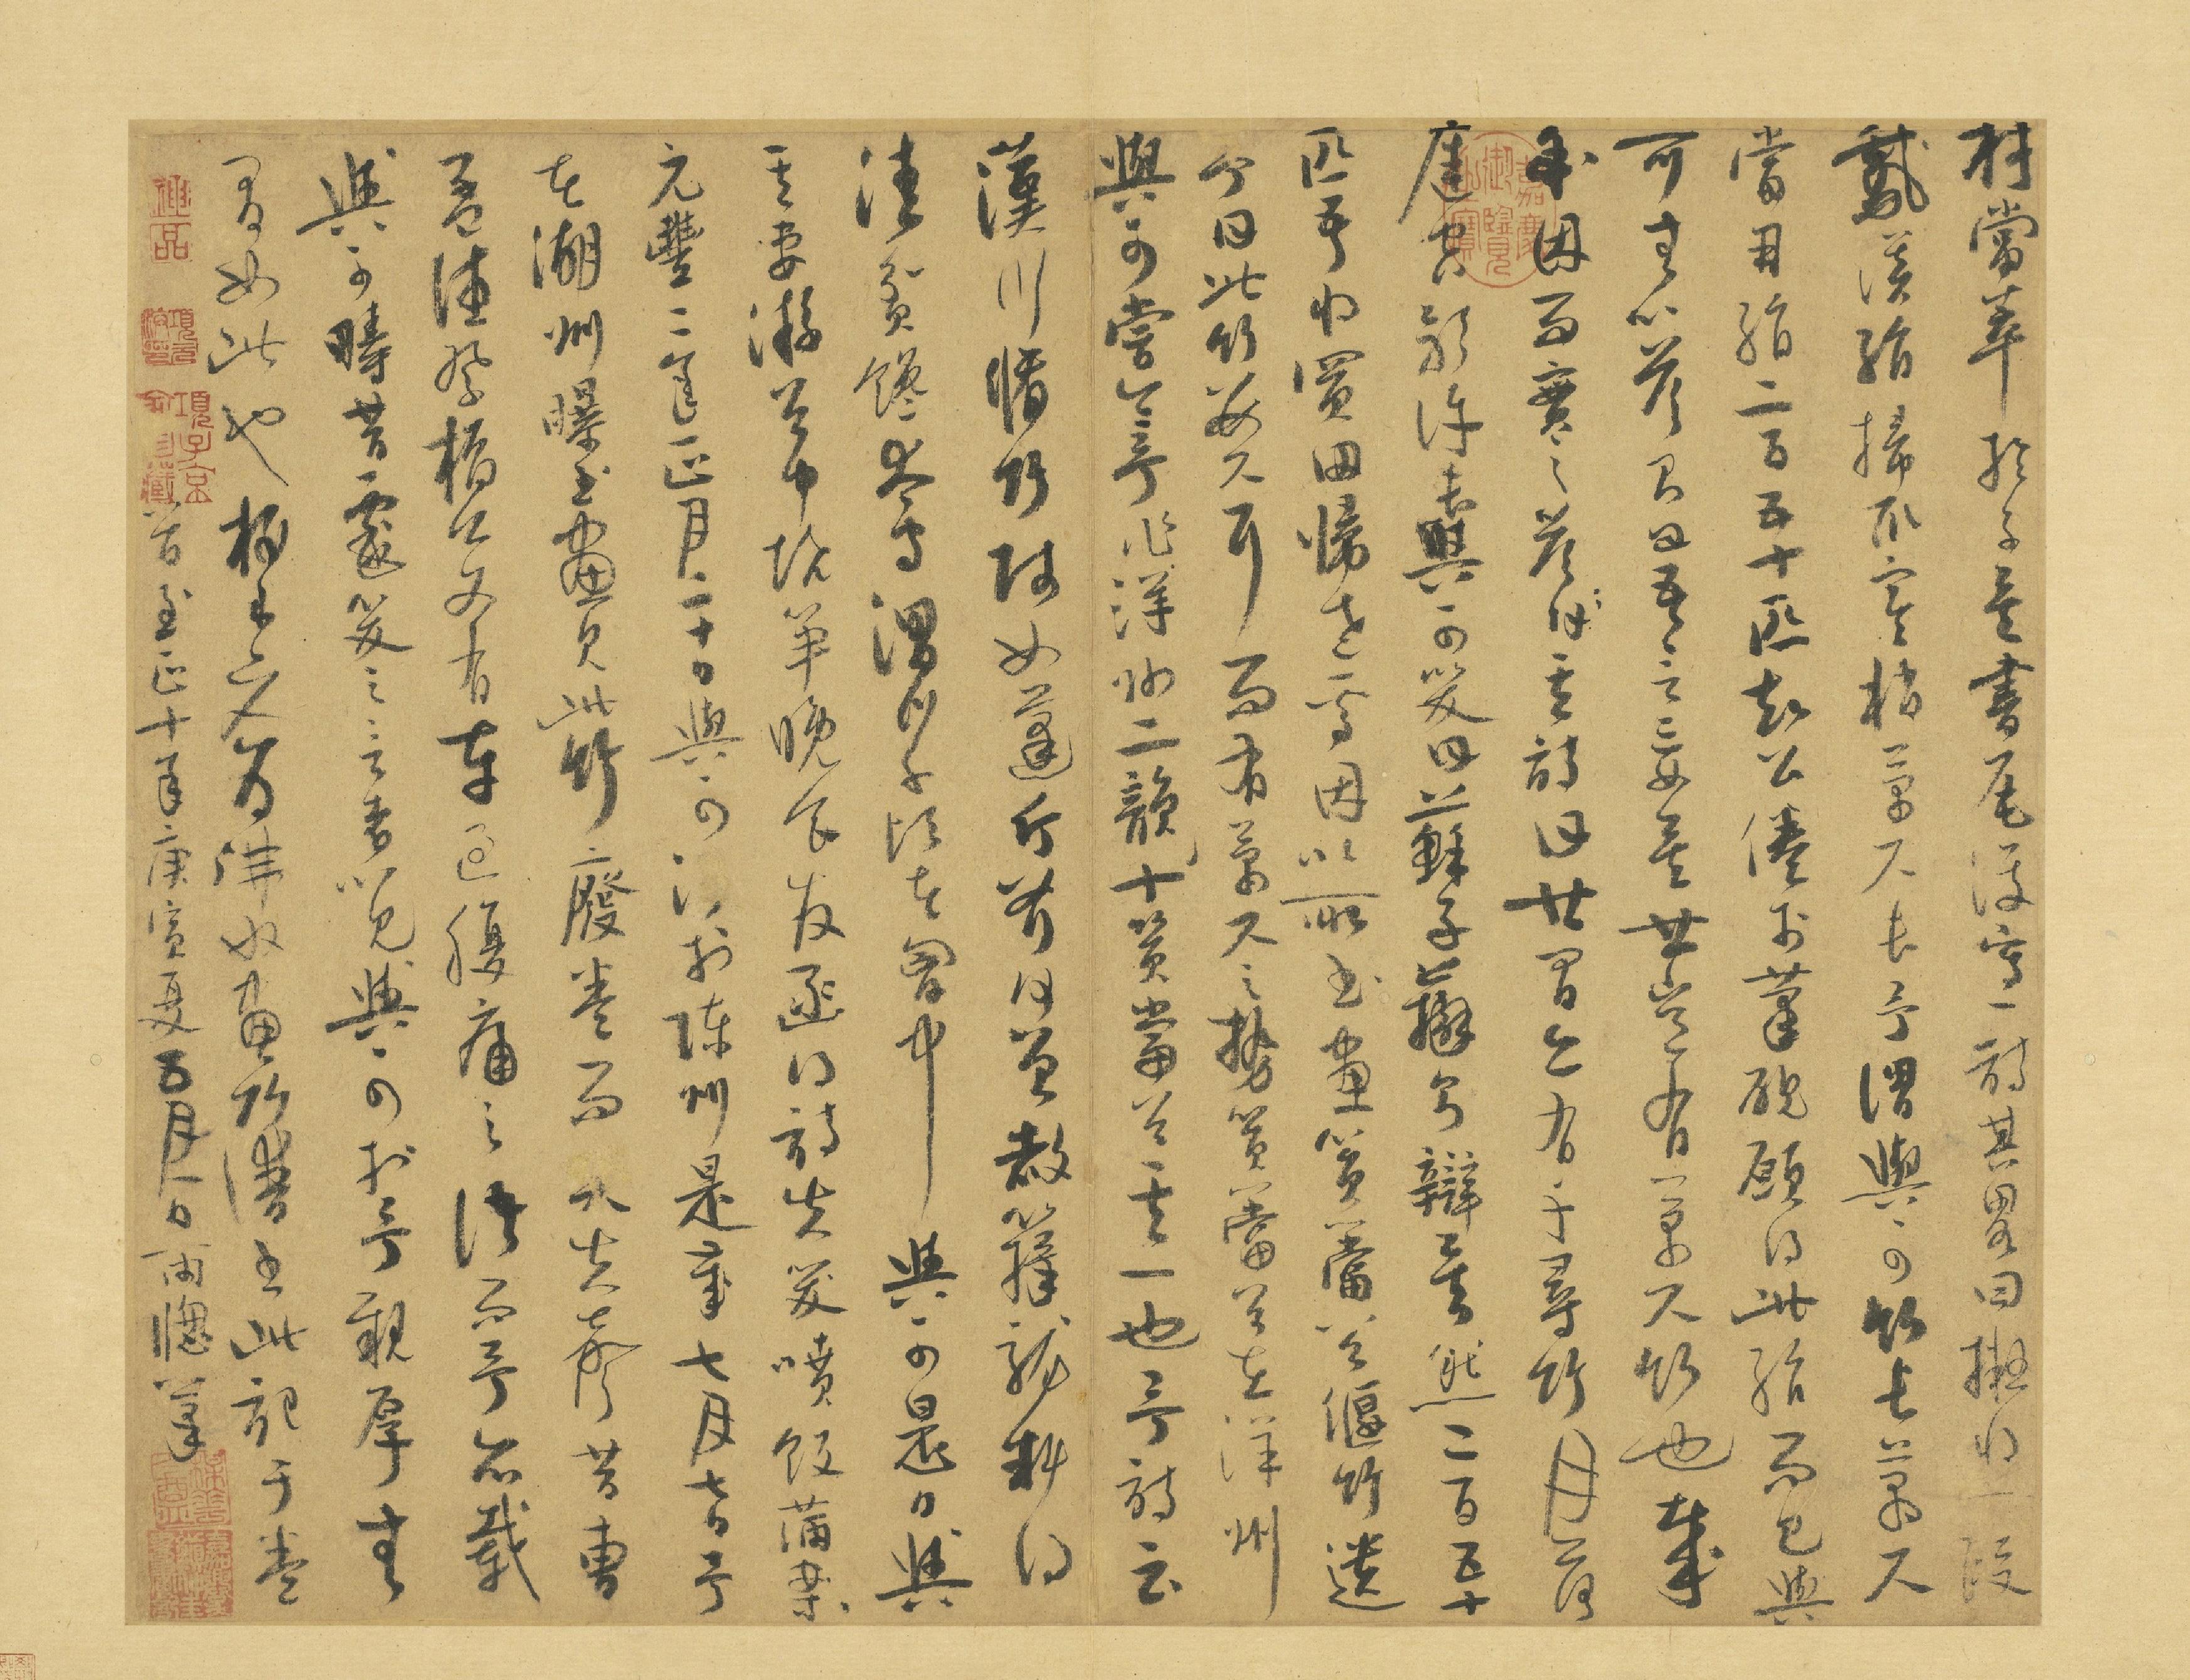 材當萃於子矣書尾復寫一詩其畧曰擬將一段
鵝溪絹掃取寒梢萬尺長予謂與可竹長萬尺
當用絹二百五十匹知公倦於筆硯願得此絹而已與
可無以答則曰吾言妄矣世豈有萬尺竹也哉
余因而實之答其詩曰世間亦有千尋竹月落
庭空影許長與可笑曰蘇子辯則辯矣然二百五十
匹吾將買田歸老焉因以所書畫篔簹谷偃竹遺
余曰此竹數尺耳而有萬尺之勢篔簹谷在洋州
與可嘗令予作洋州二韻十篔簹谷其一也予詩云
漢川脩竹賤如蓬斤斧何曾赦籜龍料得
清貧饞太守渭川千畝在胸中與可是日與
其妻游谷中燒筍晚食發函得詩失笑噴飯滿案
元豐二年正月二十日與可沒於陳州是歲七月七日予
在湖州曝書畫見此竹廢卷而哭失聲昔曹
孟德祭橋公文有車過腹痛之語而予亦載
與可疇昔戲笑之言者以見與可於予親厚無
間如此也梅道人爲佛奴畫竹譜書此記于卷
首至正十年庚寅夏五月一日雨窗筆
項子京
嘉慶御覽之寶